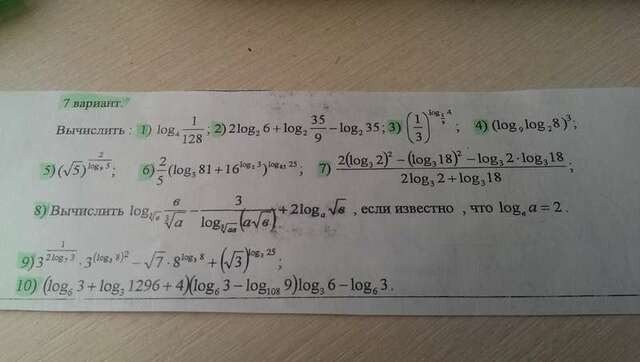 7 вариант.
Вычислить : 1) log₄ 1/128 ; 2) 2log₂ 6 + log₂ 35/9 − log₂ 35 ; 3) (1/3)^(log 4) ; 4) (log₉ log₂ 8)³ ;
5) (√5)^(2/log₉ 5) ; 6) 2/5 (log₃ 81 + 16^(log₂ 3))^(log 25) ; 7) (2(log₃ 2)² − (log₃ 18)² − log₃ 2 · log₃ 18)/(2 log₃ 2 + log₃ 18) ;
8) Вычислить log в/∛а − 3/log (а√в) + 2log_а √в , если известно , что log_в а = 2 .
9) 3^(1/(2log₇ 3)) · 3^((log₃ 8)²) − √7 · 8^(log₃ 8) + (√3)^(log₃ 25) ;
10) (log₆ 3 + log₃ 1296 + 4)(log₆ 3 − log₁₀₈ 9)log₃ 6 − log₆ 3 .